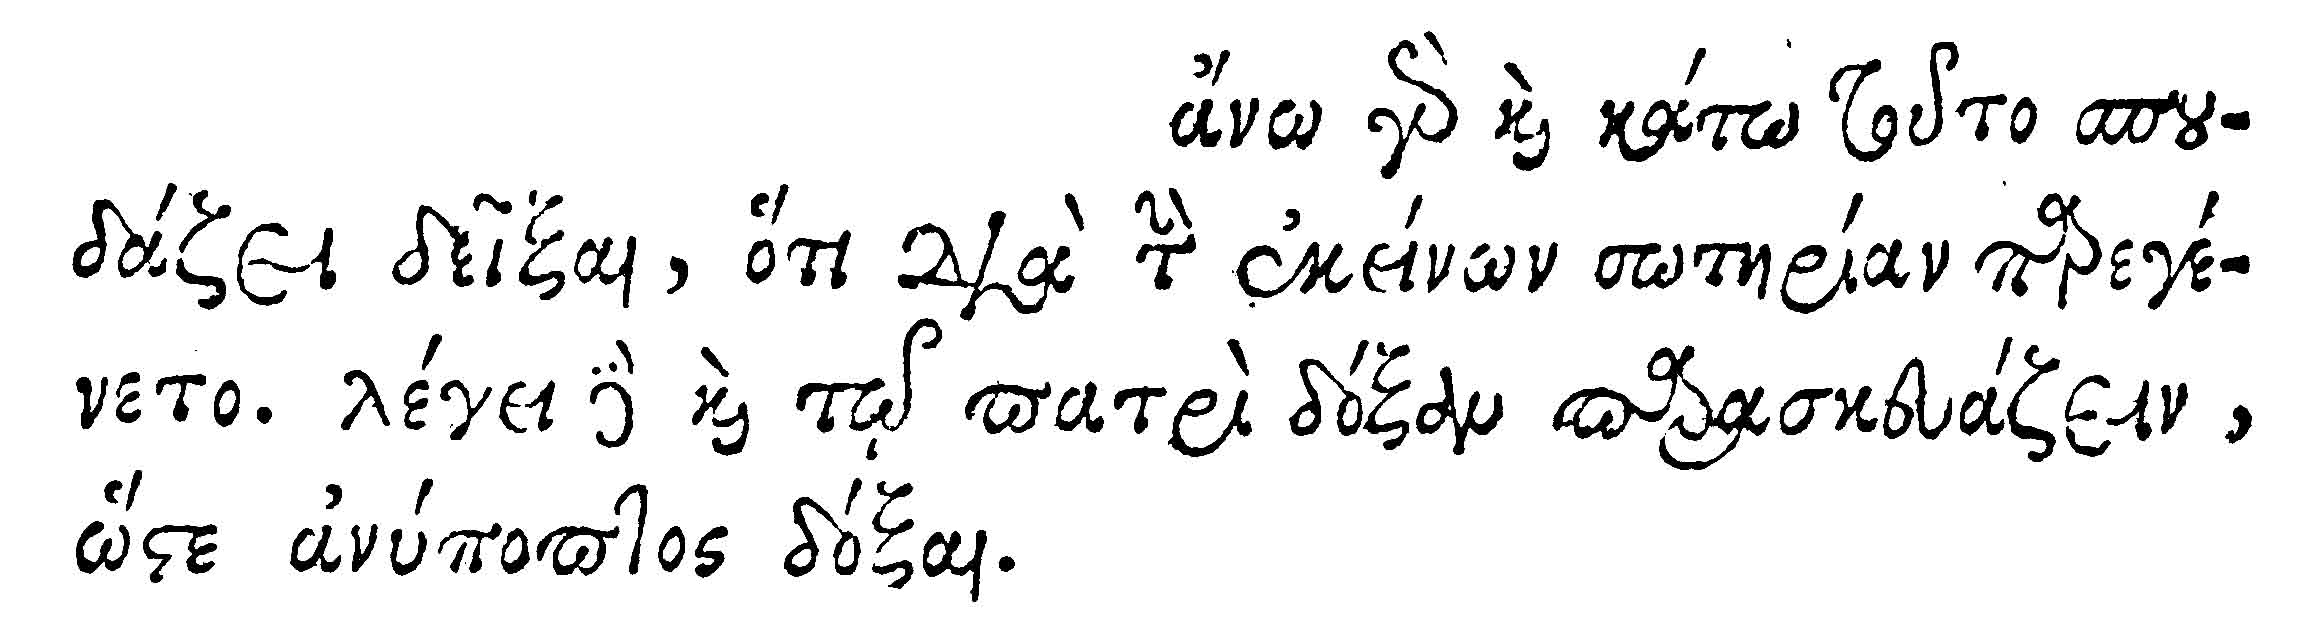 ἄνω γὰρ καὶ κάτω τοῦτο σπου-
δάζει δεῖξαι, ὅτι διὰ τὴν ἐκείνων σωτηρίαν παρεγέ-
νετο. λέγει δὲ καὶ τῷ πατρὶ δόξαν παρασκευάζειν,
ὥστε ἀνύποπτος δόξαι.